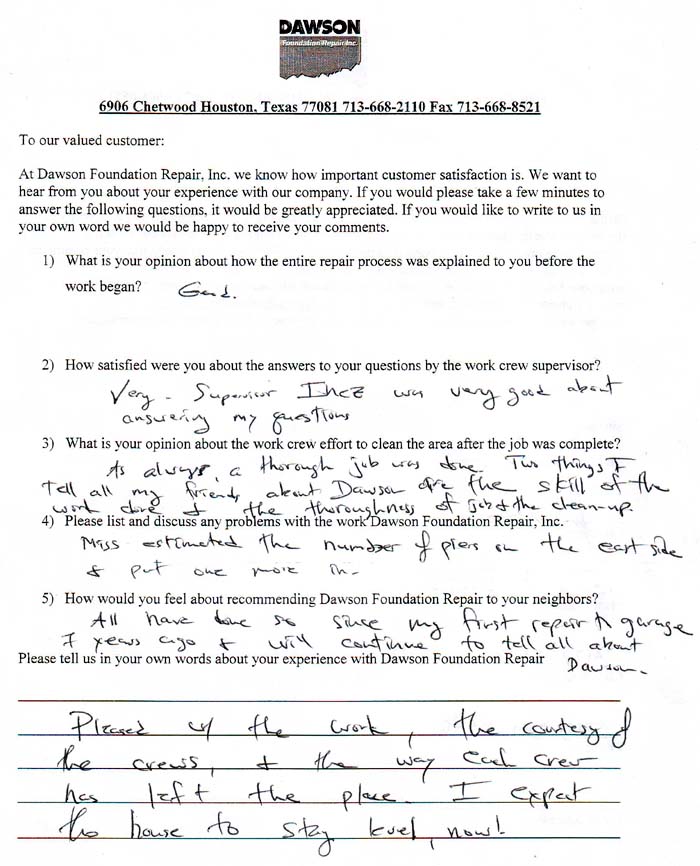 DAWSON
Foundation Repair Inc.
6906 Chetwood Houston, Texas 77081 713-668-2110 Fax 713-668-8521
To our valued customer:
At Dawson Foundation Repair, Inc. we know how important customer satisfaction is. We want to
hear from you about your experience with our company. If you would please take a few minutes to
answer the following questions, it would be greatly appreciated. If you would like to write to us in
your own word we would be happy to receive your comments.
1) What is your opinion about how the entire repair process was explained to you before the
work began? Good.
2) How satisfied were you about the answers to your questions by the work crew supervisor?
Very - Supervisor Inez was very good about
answering my questions
3) What is your opinion about the work crew effort to clean the area after the job was complete?
As always, a thorough job was done. Two things I
tell all my friends about Dawson are the skill of the
work done & the thoroughness of job & the clean-up.
4) Please list and discuss any problems with the work Dawson Foundation Repair, Inc.
Miss estimated the number of piers on the east side
& put one more in.
5) How would you feel about recommending Dawson Foundation Repair to your neighbors?
All have done so since my first repair garage
7 years ago & will continue to tell all about
Please tell us in your own words about your experience with Dawson Foundation Repair Dawson.
Pleased w/ the work, the courtesy of
the crews, & the way each crew
has left the place. I expect
the house to stay level, now!